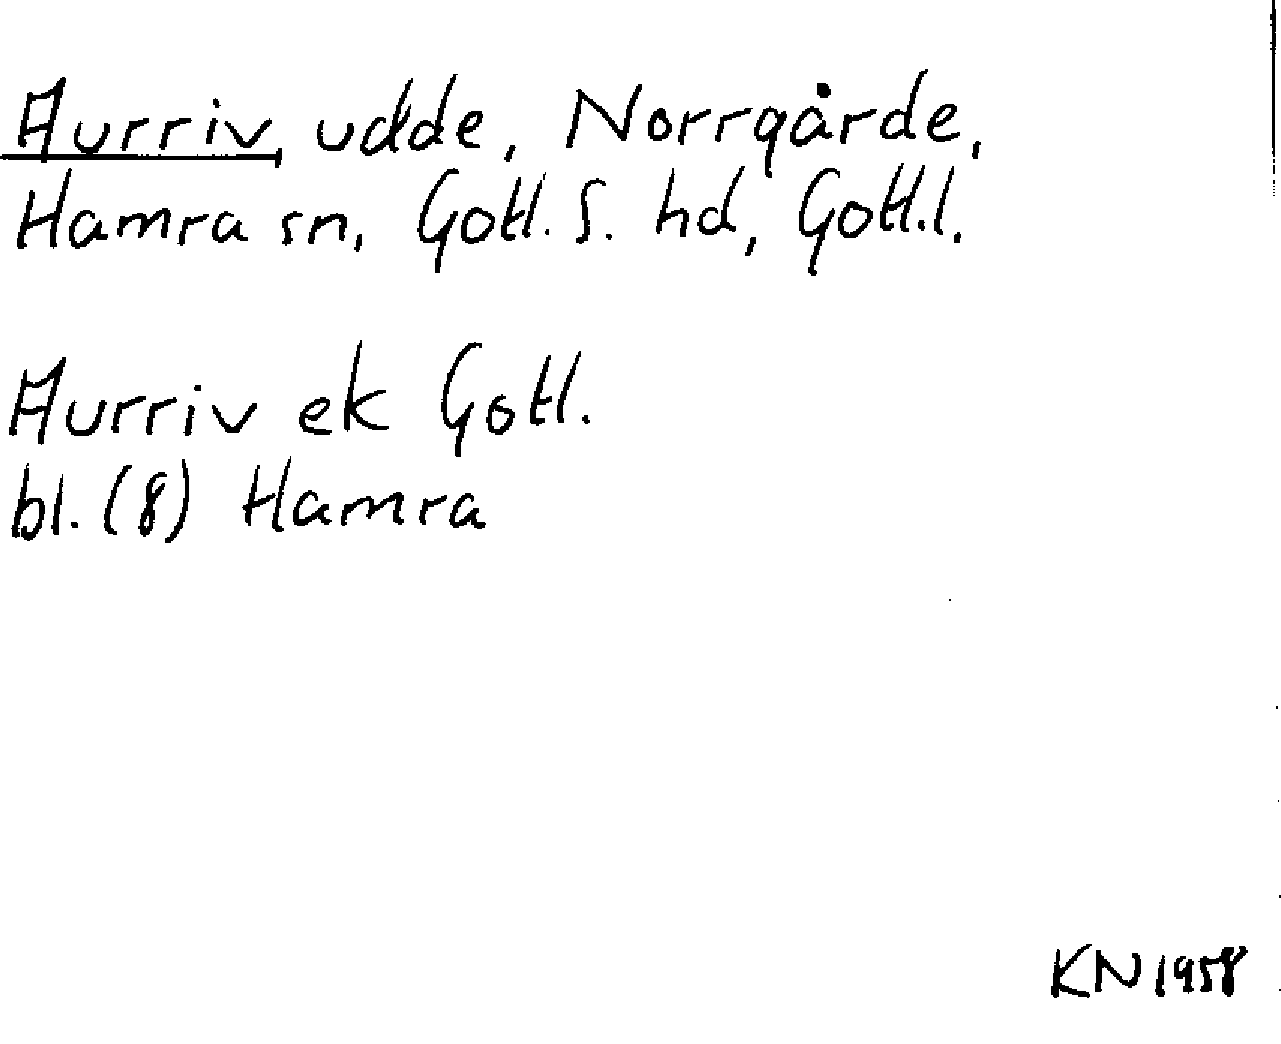 Aurriv, udde, Norrgårde,
Hamra sn, Gotl. S. hd, Gottl.l.
Aurriv ek Gotl.
bl. (8) Hamra
KN 1958